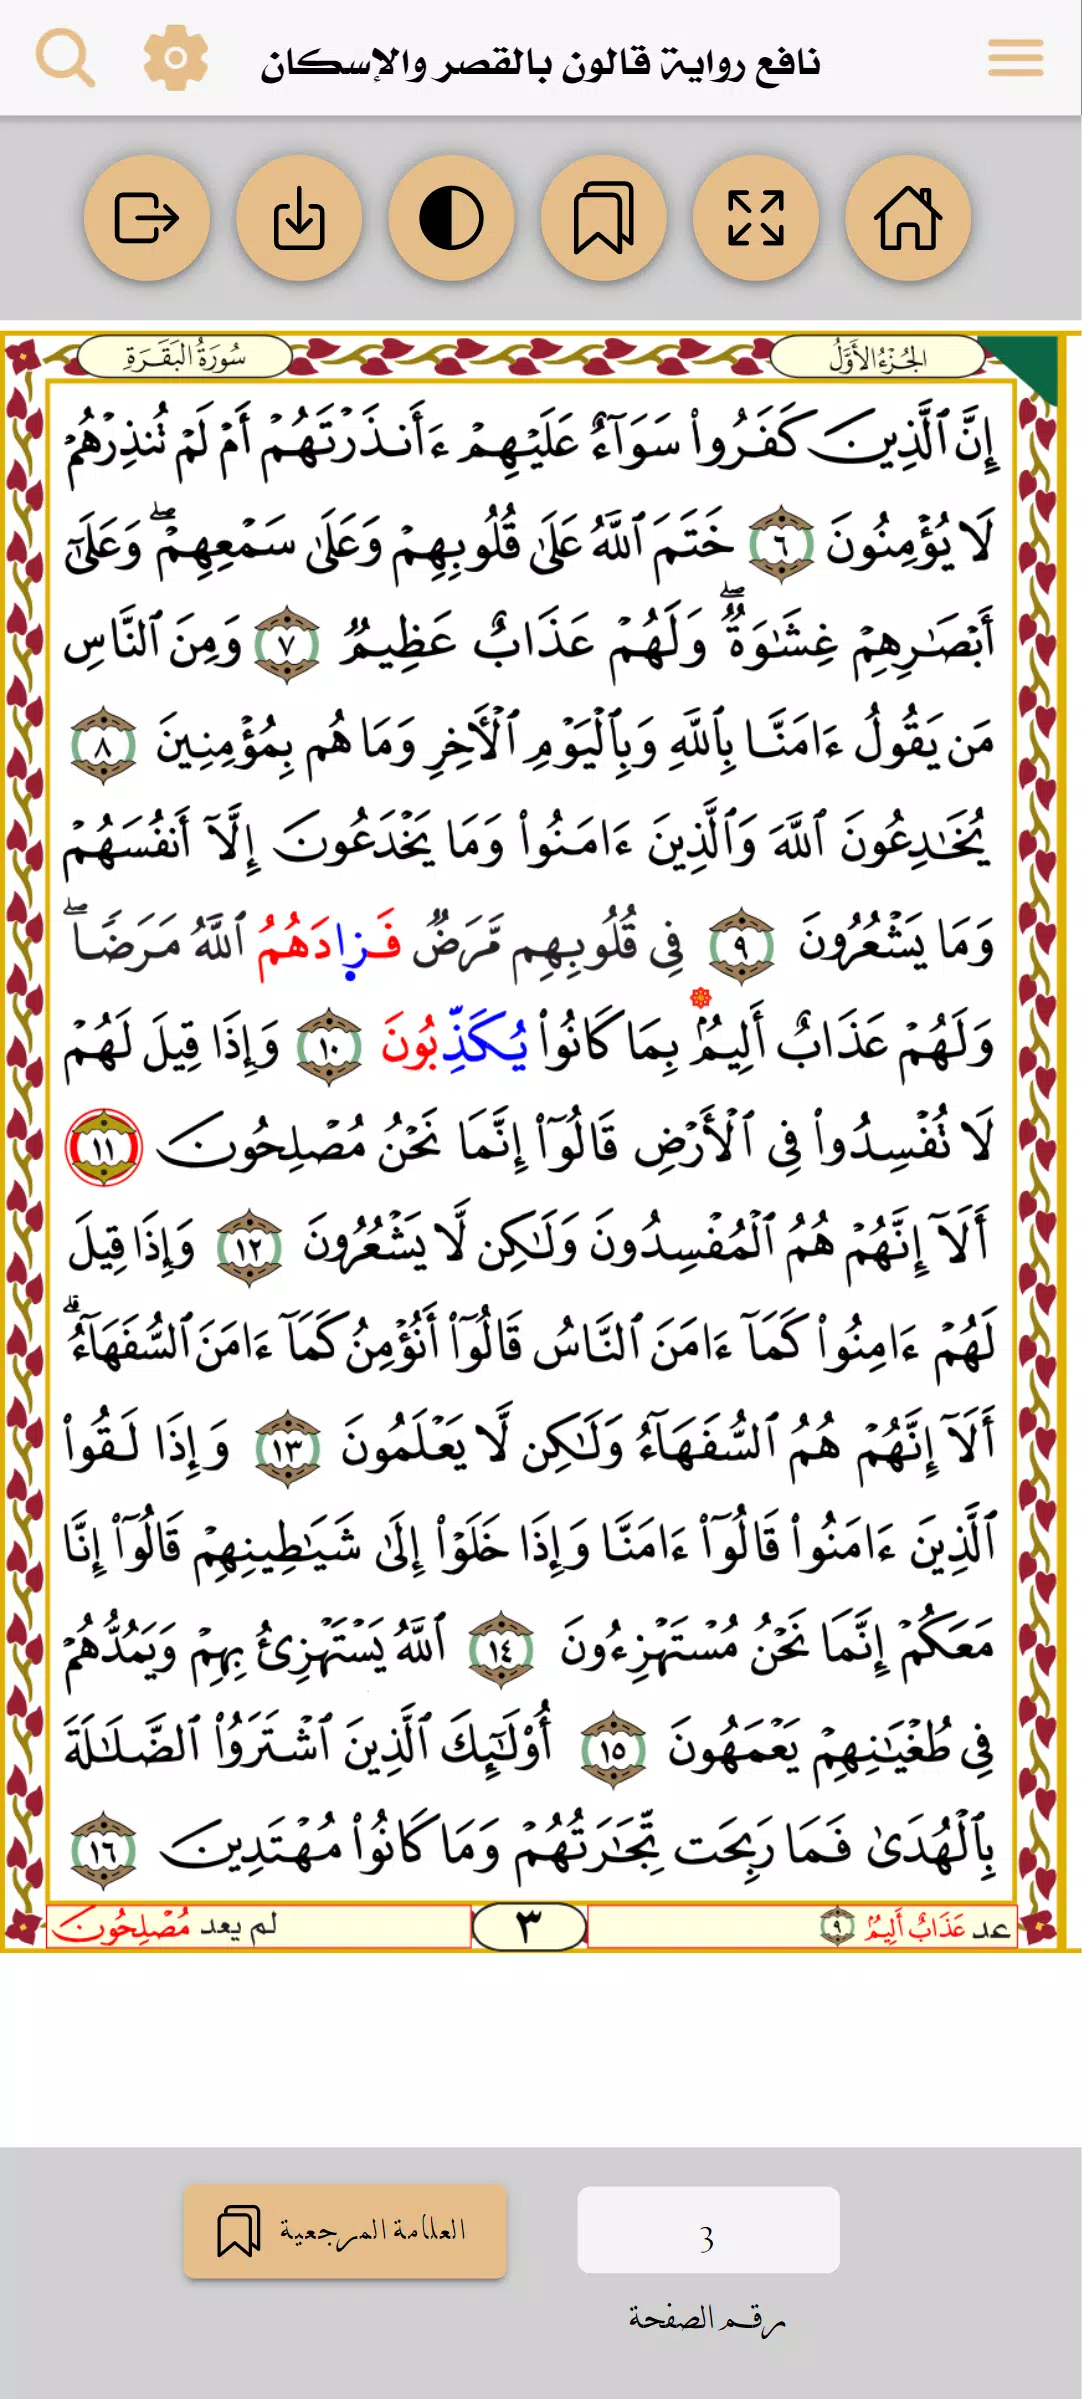 نافع رواية قالون بالقصر والإسكان
الجُزْءُ الأَوَّلُ
سُورَةُ البَقَرَةِ
إِنَّ ٱلَّذِينَ كَفَرُواْ سَوَآءٌ عَلَيْهِمْ ءَأَنذَرْتَهُمْ أَمْ لَمْ تُنذِرْهُمْ
لَا يُؤْمِنُونَ ٦ خَتَمَ ٱللَّهُ عَلَىٰ قُلُوبِهِمْ وَعَلَىٰ سَمْعِهِمْۖ وَعَلَىٰٓ
أَبْصَٰرِهِمْ غِشَٰوَةٌۖ وَلَهُمْ عَذَابٌ عَظِيمٌ ٧ وَمِنَ ٱلنَّاسِ
مَن يَقُولُ ءَامَنَّا بِٱللَّهِ وَبِٱلْيَوْمِ ٱلْأٓخِرِ وَمَا هُم بِمُؤْمِنِينَ ٨
يُخَٰدِعُونَ ٱللَّهَ وَٱلَّذِينَ ءَامَنُواْ وَمَا يَخْدَعُونَ إِلَّآ أَنفُسَهُمْ
وَمَا يَشْعُرُونَ ٩ فِي قُلُوبِهِم مَّرَضٌ فَزَادَهُمُ ٱللَّهُ مَرَضًاۖ
وَلَهُمْ عَذَابٌ أَلِيمُۢ بِمَا كَانُواْ يُكَذِّبُونَ ١٠ وَإِذَا قِيلَ لَهُمْ
لَا تُفْسِدُواْ فِي ٱلْأَرْضِ قَالُوٓاْ إِنَّمَا نَحْنُ مُصْلِحُونَ ١١
أَلَآ إِنَّهُمْ هُمُ ٱلْمُفْسِدُونَ وَلَٰكِن لَّا يَشْعُرُونَ ١٢ وَإِذَا قِيلَ
لَهُمْ ءَامِنُواْ كَمَآ ءَامَنَ ٱلنَّاسُ قَالُوٓاْ أَنُؤْمِنُ كَمَآ ءَامَنَ ٱلسُّفَهَآءُۗ
أَلَآ إِنَّهُمْ هُمُ ٱلسُّفَهَآءُ وَلَٰكِن لَّا يَعْلَمُونَ ١٣ وَإِذَا لَقُواْ
ٱلَّذِينَ ءَامَنُواْ قَالُوٓاْ ءَامَنَّا وَإِذَا خَلَوْاْ إِلَىٰ شَيَٰطِينِهِمْ قَالُوٓاْ إِنَّا
مَعَكُمْ إِنَّمَا نَحْنُ مُسْتَهْزِءُونَ ١٤ ٱللَّهُ يَسْتَهْزِئُ بِهِمْ وَيَمُدُّهُمْ
فِي طُغْيَٰنِهِمْ يَعْمَهُونَ ١٥ أُوْلَٰٓئِكَ ٱلَّذِينَ ٱشْتَرَوُاْ ٱلضَّلَٰلَةَ
بِٱلْهُدَىٰ فَمَا رَبِحَت تِّجَٰرَتُهُمْ وَمَا كَانُواْ مُهْتَدِينَ ١٦
عد عَذَابٌ أَلِيمٌ ٩
٣
لم يعد مُصْلِحُونَ
3
العلامة المرجعية
رقم الصفحة